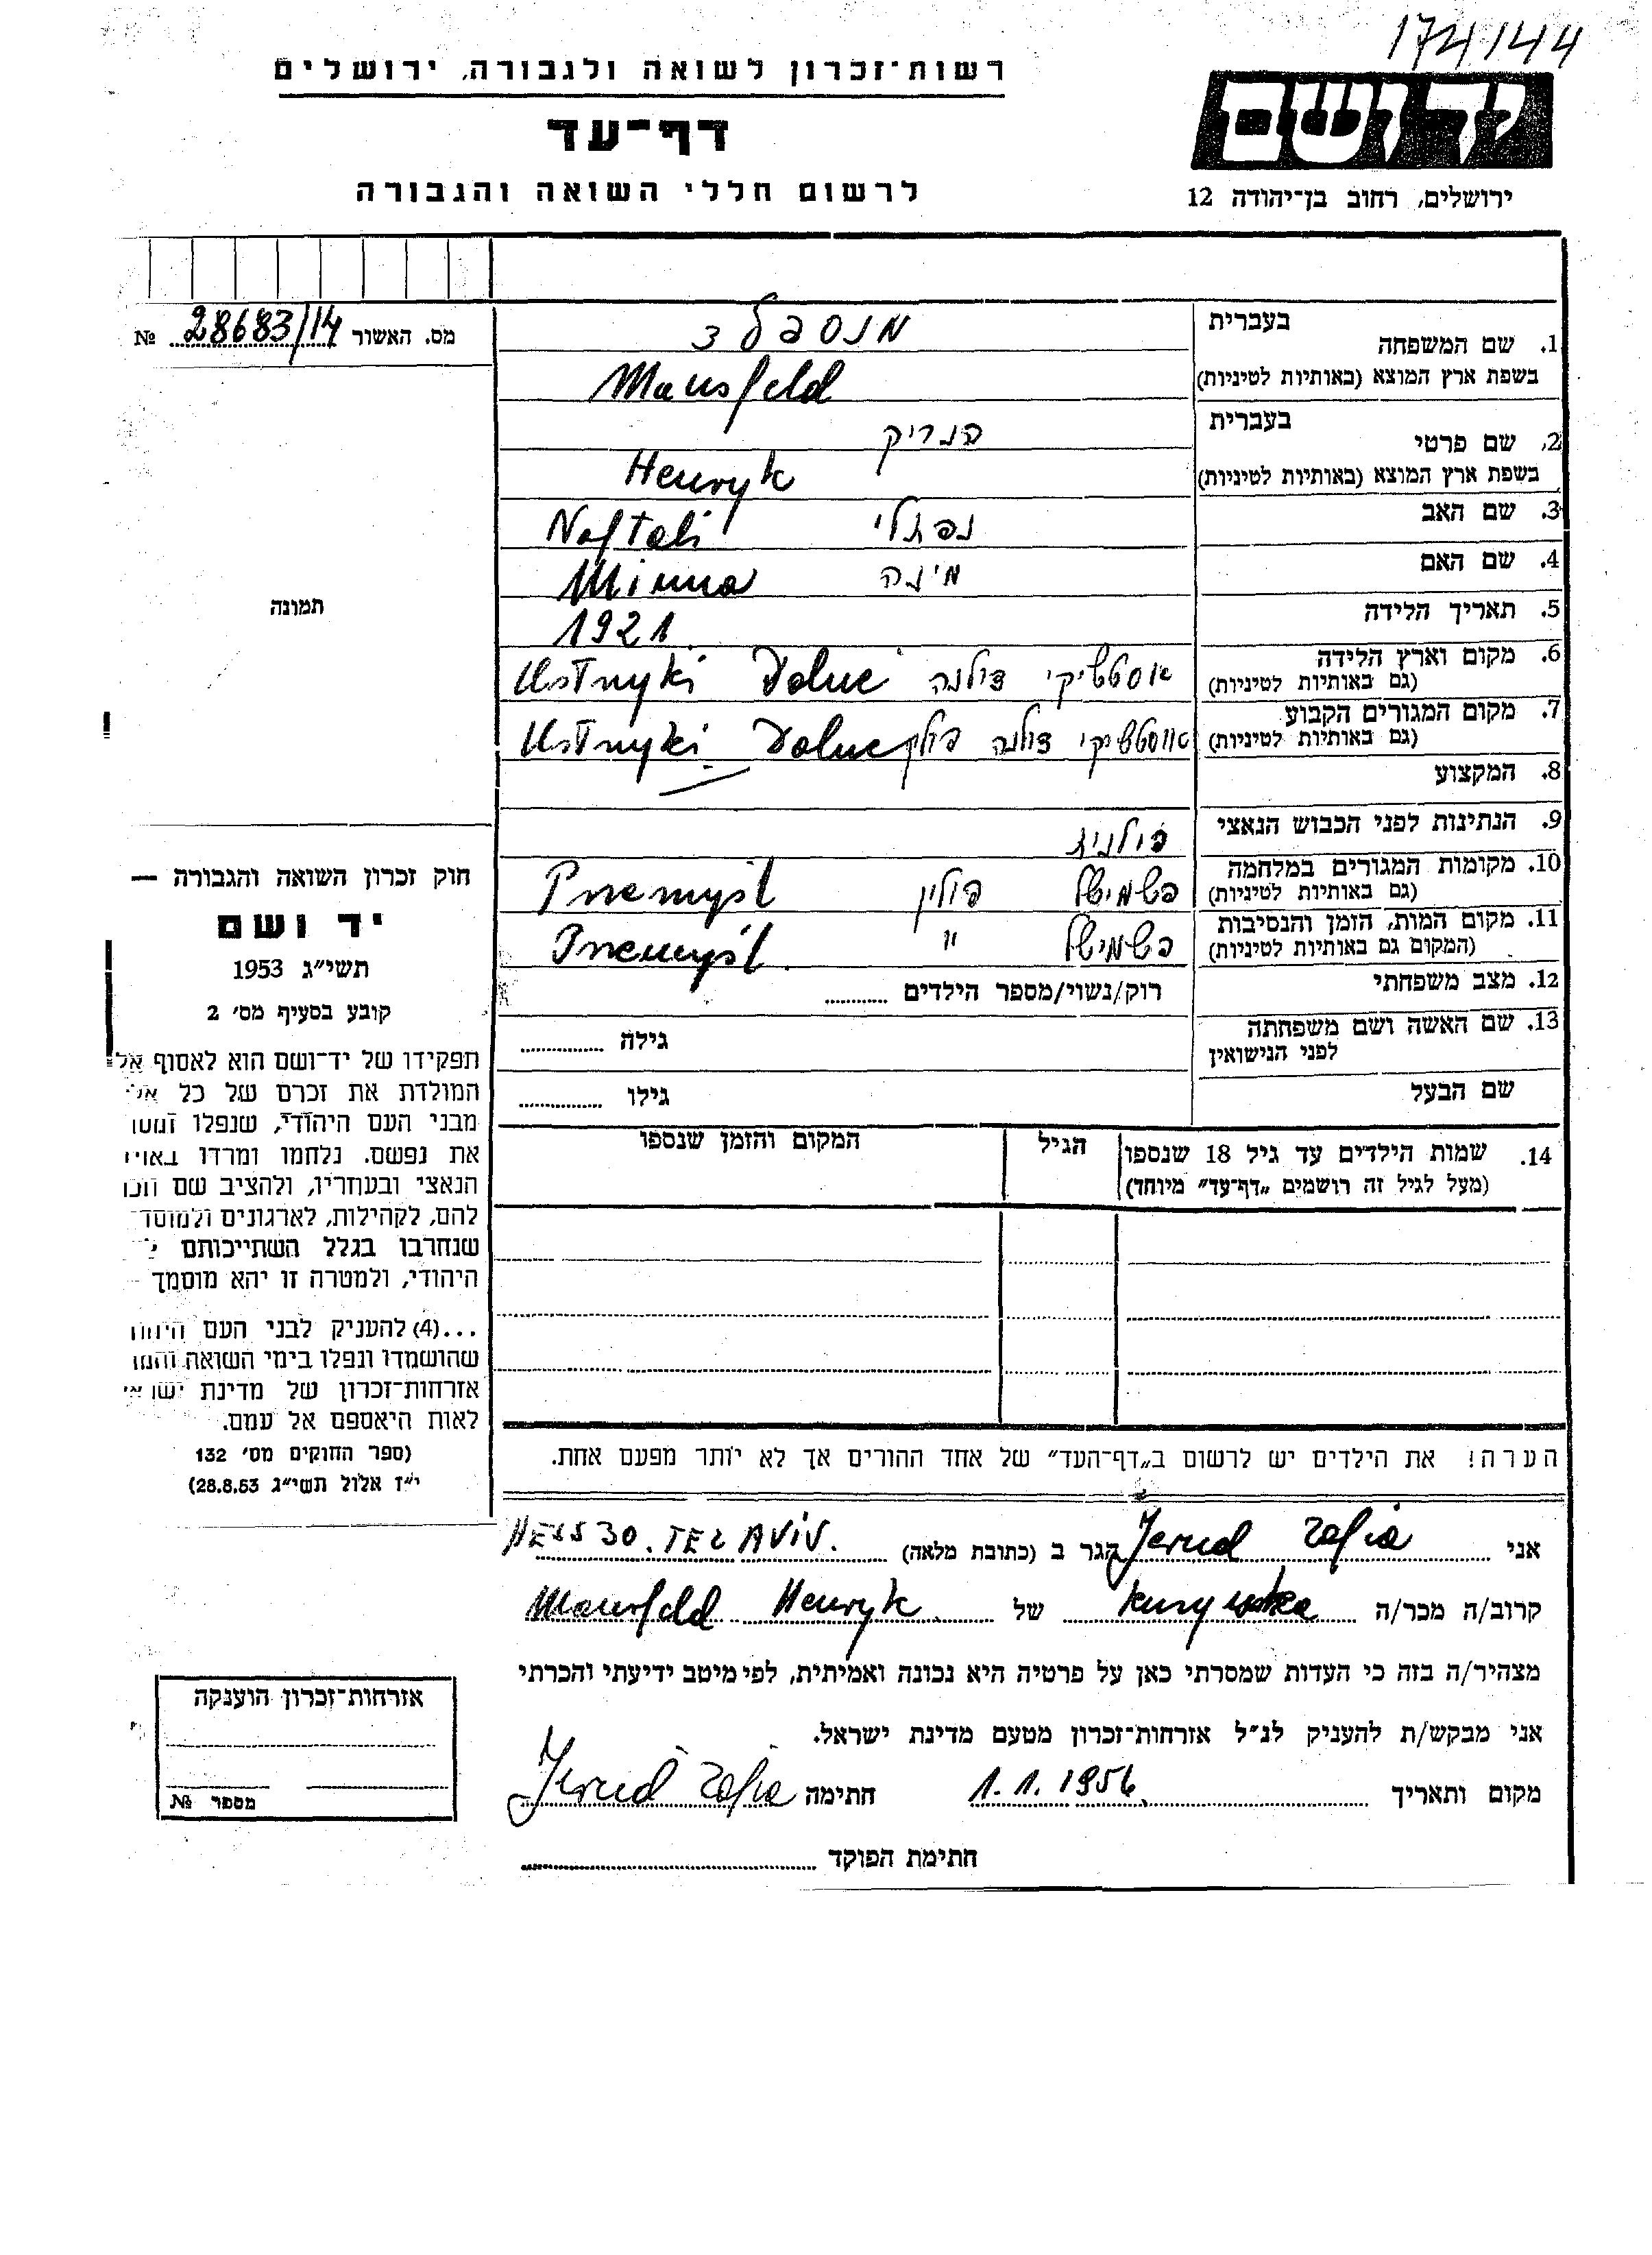 174/44
רשות־זכרון לשואה ולגבורה, ירושלים
דף־עד
לרשום חללי השואה והגבורה
יד ושם
ירושלים, רחוב בן־יהודה 12
מס. האשור 28683/14 №
תמונה
1. שם המשפחה בעברית מנספלד
בשפת ארץ המוצא (באותיות לטיניות) Mansfeld
2. שם פרטי בעברית הנריק
בשפת ארץ המוצא (באותיות לטיניות) Henryk
3. שם האב נפתלי Naftali
4. שם האם מינה Minna
5. תאריך הלידה 1921
6. מקום וארץ הלידה (גם באותיות לטיניות) אוסטשיקי דולנה Ustnyki Dolne
7. מקום המגורים הקבוע (גם באותיות לטיניות) אוסטשיקי דולנה Ustnyki Dolne
8. המקצוע
9. הנתינות לפני הכבוש הנאצי פולנית
10. מקומות המגורים במלחמה (גם באותיות לטיניות) פשמישל פולין Pnemyśl
11. מקום המות, הזמן והנסיבות (המקום גם באותיות לטיניות) פשמישל " Pnemyśl
12. מצב משפחתי רוק/נשוי/מספר הילדים
13. שם האשה ושם משפחתה לפני הנישואין גילה
שם הבעל גילו
14. שמות הילדים עד גיל 18 שנספו (מעל לגיל זה רושמים „דף־עד״ מיוחד) הגיל המקום והזמן שנספו
חוק זכרון השואה והגבורה —
יד ושם
תשי״ג 1953
קובע בסעיף מס׳ 2
תפקידו של יד־ושם הוא לאסוף אל
המולדת את זכרם של כל
מבני העם היהודי, שנפלו
את נפשם, נלחמו ומרדו
הנאצי ובעוזריו, ולהציב שם
להם, לקהילות, לארגונים
שנחרבו בגלל השתייכותם
היהודי, ולמטרה זו יהא מוסמך
...(4) להעניק לבני העם
שהושמדו ונפלו בימי השואה
אזרחות־זכרון של מדינת
לאות היאספם אל עמם.
(ספר החוקים מס׳ 132
י״ז אלול תשי״ג 28.8.53)
הערה! את הילדים יש לרשום ב„דף־העד״ של אחד ההורים אך לא יותר מפעם אחת.
אני Jerud Zofia הגר ב (כתובת מלאה) 30. TEL AVIV.
קרוב/ה מכר/ה kuzynka של Mansfeld Henryk
מצהיר/ה בזה כי העדות שמסרתי כאן על פרטיה היא נכונה ואמיתית, לפי מיטב ידיעתי והכרתי
אני מבקש/ת להעניק לנ״ל אזרחות־זכרון מטעם מדינת ישראל.
מקום ותאריך 1.1.1956 חתימה Jerud Zofia
חתימת הפוקד
אזרחות־זכרון הוענקה
מספר №